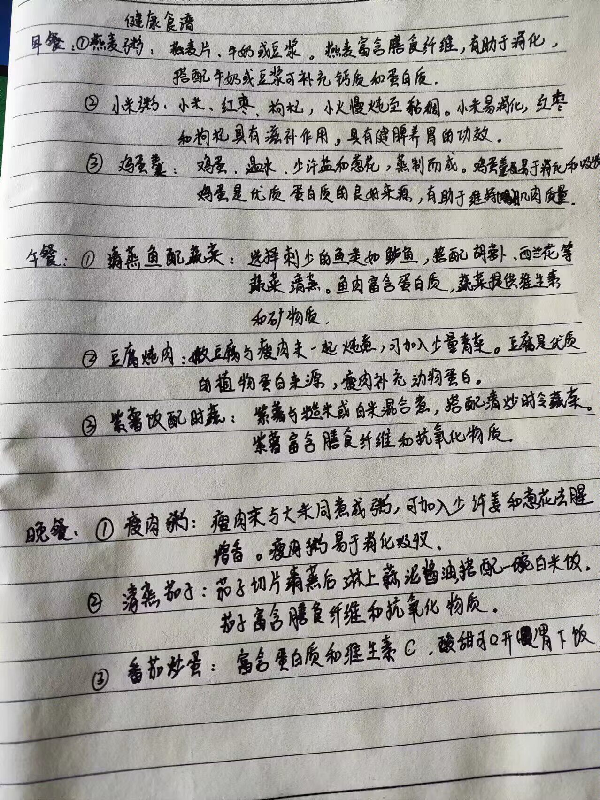 健康食谱
早餐:①燕麦粥:燕麦片、牛奶或豆浆。燕麦富含膳食纤维,有助于消化,
搭配牛奶或豆浆可补充钙质和蛋白质.
②小米粥:小米、红枣、枸杞,小火慢炖至黏稠。小米易消化,红枣
和枸杞具有滋补作用,具有健脾养胃的功效.
③鸡蛋羹:鸡蛋、温水、少许盐和葱花,蒸制而成。鸡蛋羹易于消化和吸收
鸡蛋是优质蛋白质的良好来源,有助于维持肌肉质量.
午餐:①清蒸鱼配蔬菜:选择刺少的鱼类如鲈鱼,搭配胡萝卜、西兰花等
蔬菜清蒸。鱼肉富含蛋白质,蔬菜提供维生素
和矿物质.
②豆腐炖肉:嫩豆腐与瘦肉末一起炖煮,可加入少量青菜。豆腐是优质
的植物蛋白来源,瘦肉补充动物蛋白。
③紫薯饭配时蔬:紫薯与糙米或白米混合煮,搭配清炒时令蔬菜。
紫薯富含膳食纤维和抗氧化物质.
晚餐:①瘦肉粥:瘦肉末与大米同煮成粥,可加入少许姜和葱花去腥
增香。瘦肉粥易于消化吸收.
②清蒸茄子:茄子切片清蒸后淋上蒜泥酱油,搭配一碗白米饭.
茄子富含膳食纤维和抗氧化物质。
③番茄炒蛋:富含蛋白质和维生素C,酸甜可口开胃下饭